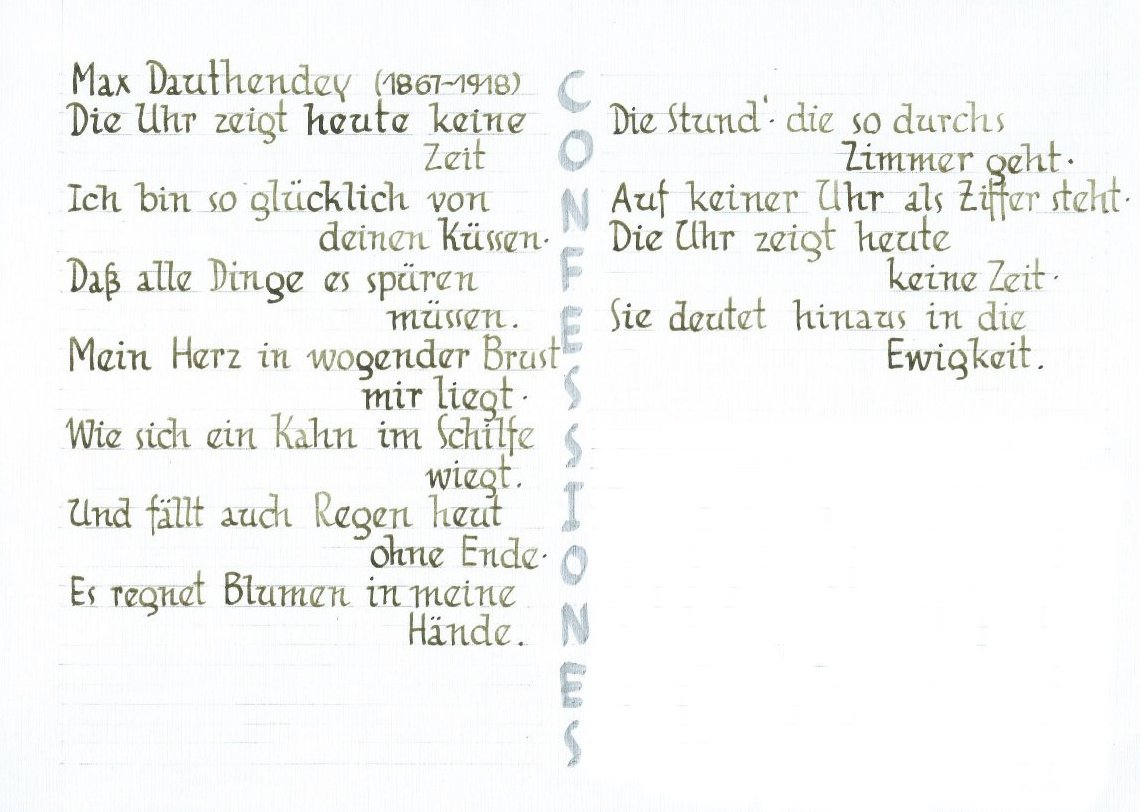 Max Dauthendey (1867-1918)
Die Uhr zeigt heute keine
Zeit
Ich bin so glücklich von
deinen Küssen·
Daß alle Dinge es spüren
müssen.
Mein Herz in wogender Brust
mir liegt·
Wie sich ein Kahn im Schilfe
wiegt.
Und fällt auch Regen heut
ohne Ende·
Es regnet Blumen in meine
Hände.
CONFESSIONES
Die Stund'· die so durchs
Zimmer geht·
Auf keiner Uhr als Ziffer steht·
Die Uhr zeigt heute
keine Zeit·
Sie deutet hinaus in die
Ewigkeit.